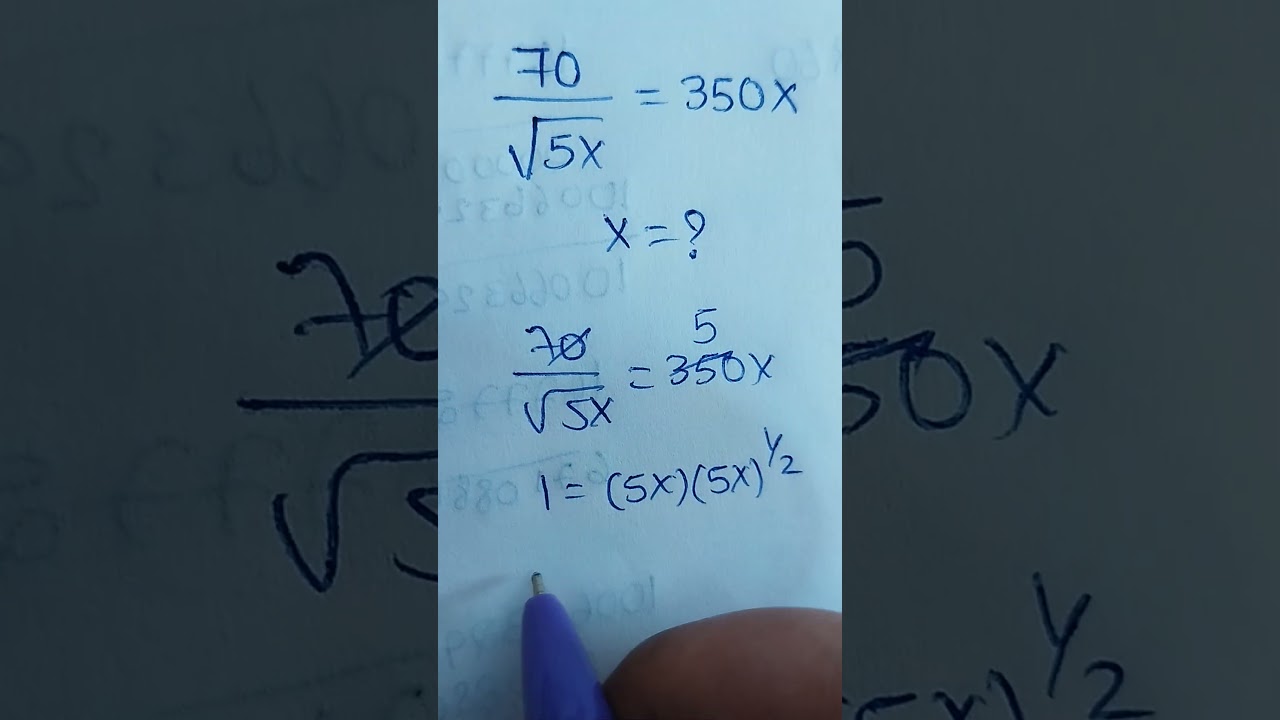 70/√5x = 350x
x = ?
5
70/√5x = 350x
1 = (5x)(5x)^1/2